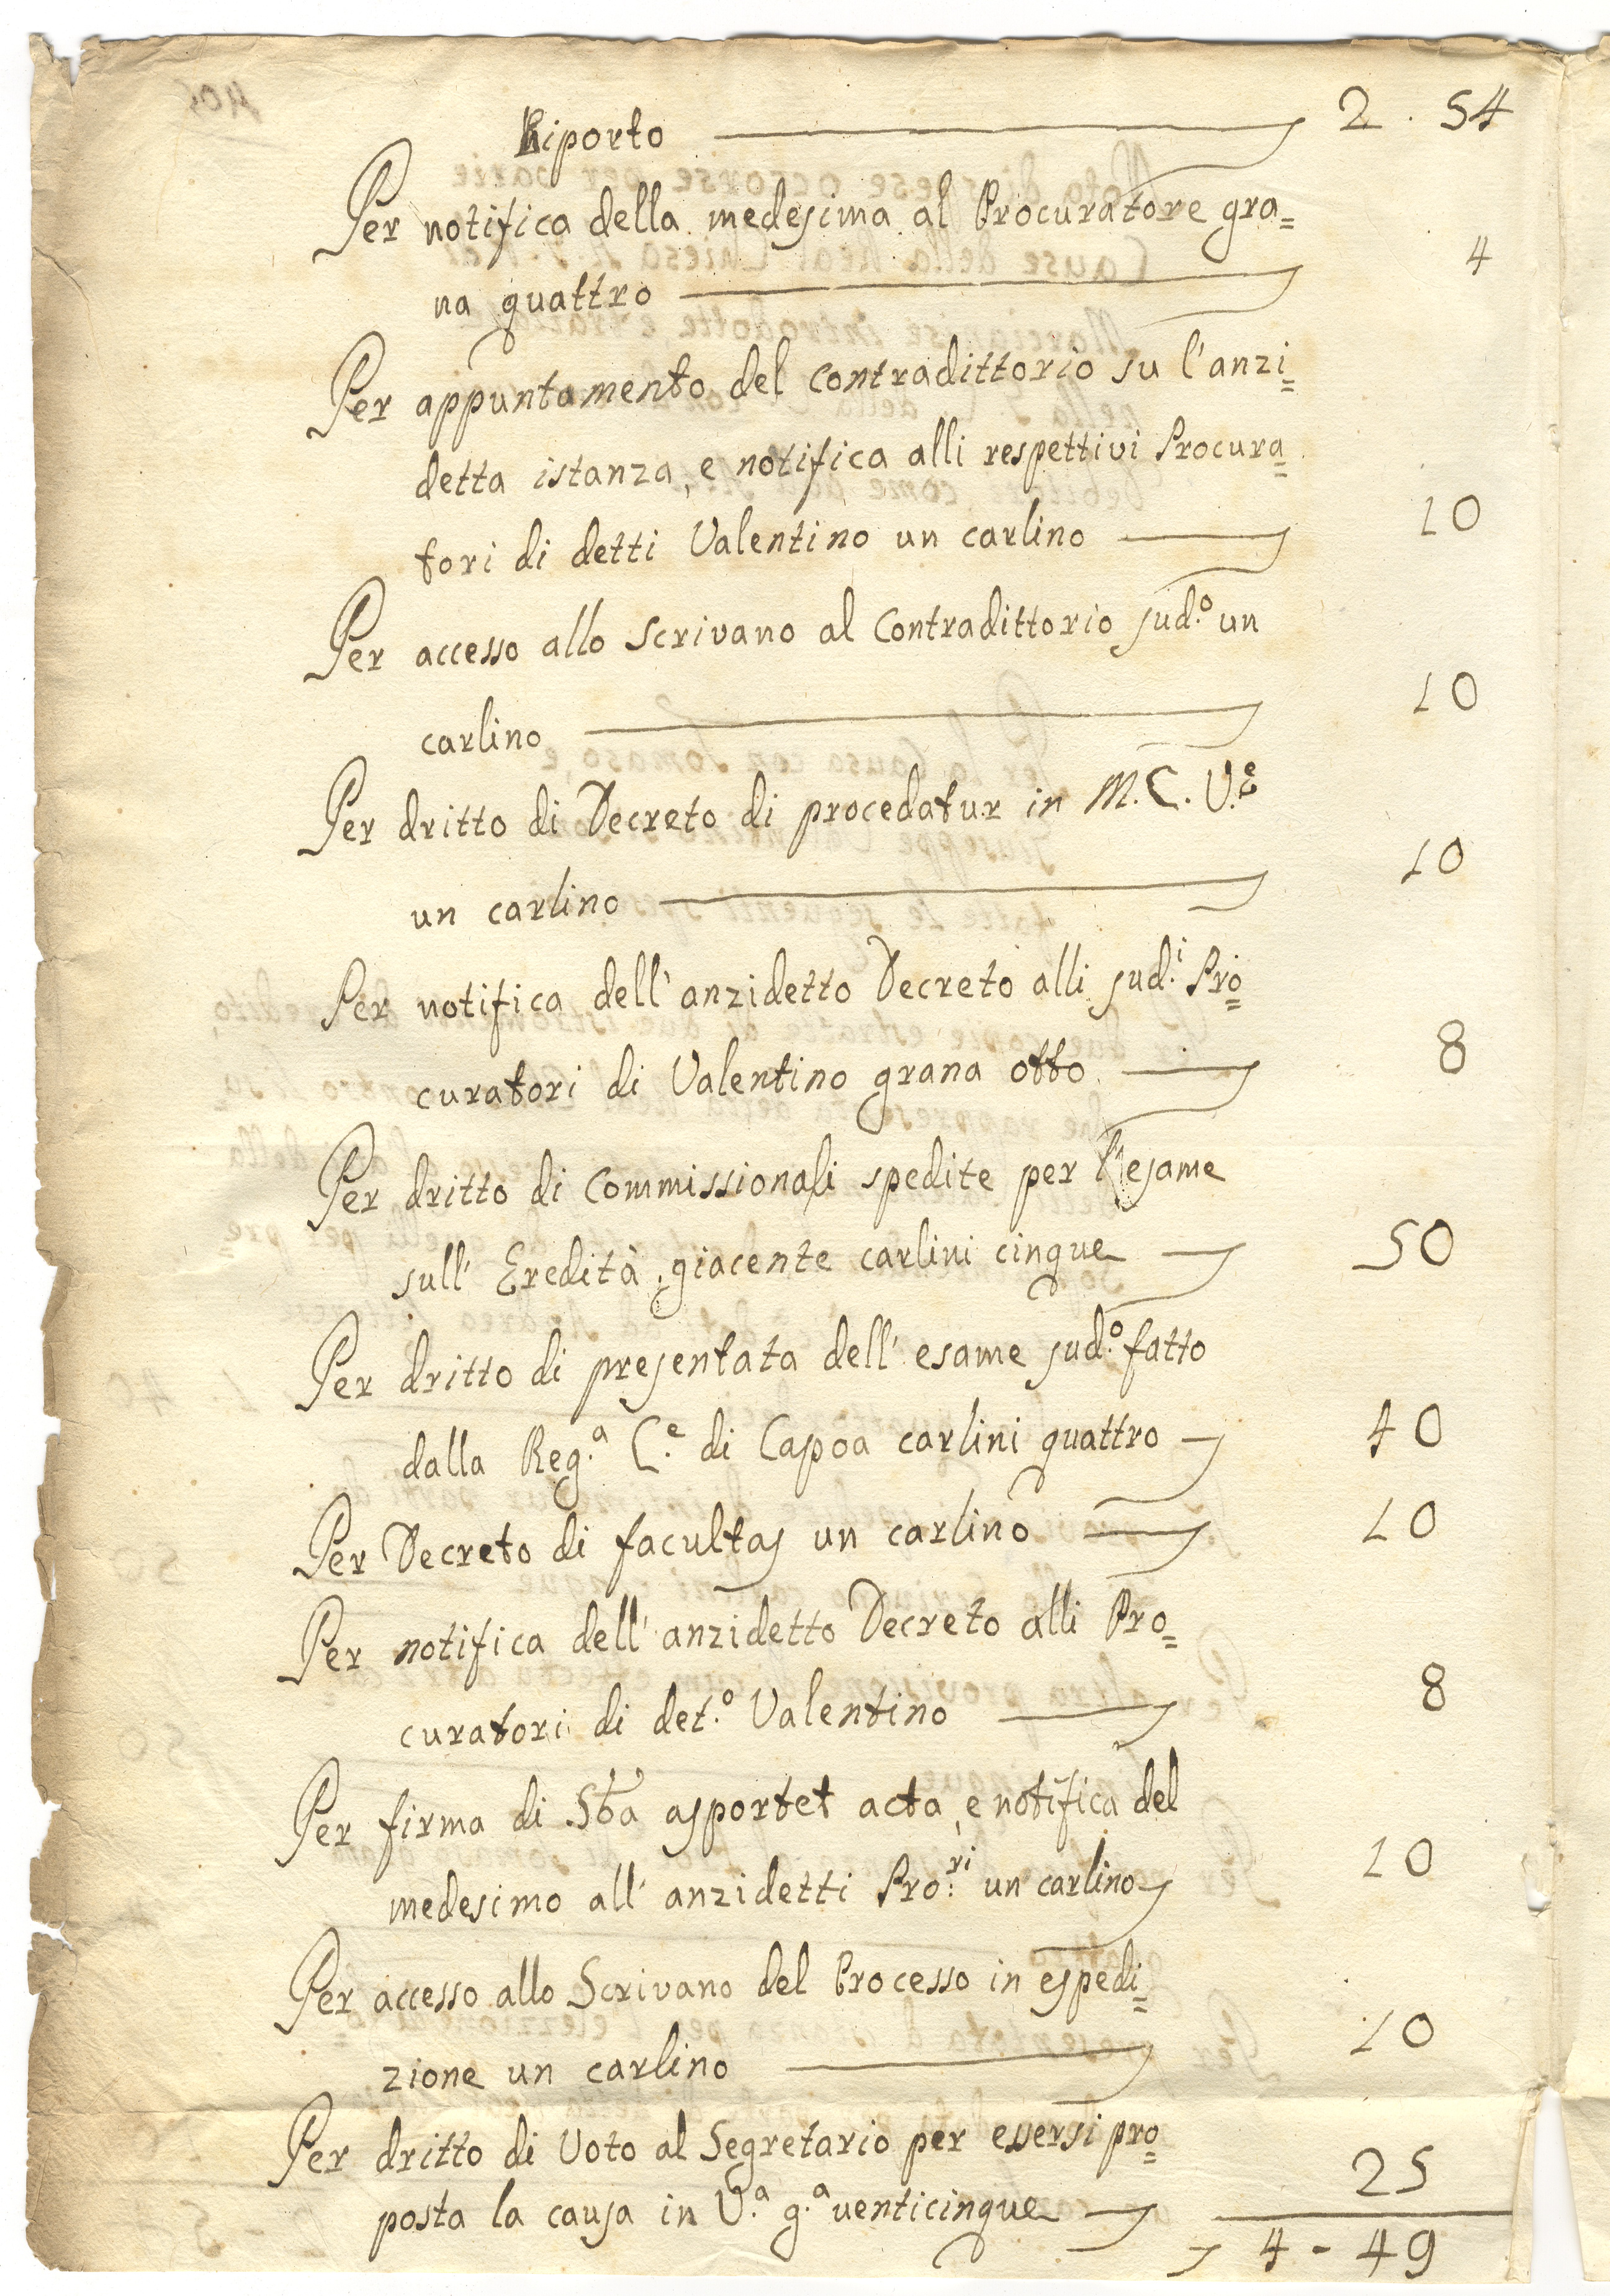 Riporto 2 . 54
Per notifica della medesima al Procuratore gra=
na quattro 4
Per appuntamento del contradittorio su l'anzi=
detta istanza, e notifica alli respettivi Procura=
tori di detti Valentino un carlino 10
Per accesso allo Scrivano al Contradittorio sud.º un
carlino 10
Per dritto di Decreto di procedatur in M. C. V.e
un carlino 10
Per notifica dell'anzidetto Decreto alli sud.i Pro=
curatori di Valentino grana otto 8
Per dritto di Commissionali spedite per l'esame
sull' Eredità giacente carlini cinque 50
Per dritto di presentata dell' esame sud.º fatto
dalla Reg.a C.e di Capoa carlini quattro 40
Per Decreto di facultas un carlino 10
Per notifica dell' anzidetto Decreto alli Pro=
curatori di det.º Valentino 8
Per firma di Sta asportet acta, e notifica del
medesimo all' anzidetti Pro.ri un carlino 10
Per accesso allo Scrivano del Processo in espedi=
zione un carlino 10
Per dritto di Voto al Segretario per essersi pro=
posta la causa in V.a g.a venticinque 25
4 - 49